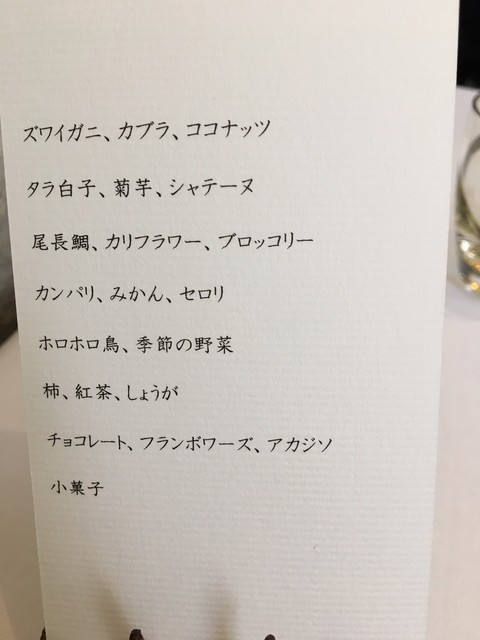 ズワイガニ、カブラ、ココナッツ
タラ白子、菊芋、シャテーヌ
尾長鯛、カリフラワー、ブロッコリー
カンパリ、みかん、セロリ
ホロホロ鳥、季節の野菜
柿、紅茶、しょうが
チョコレート、フランボワーズ、アカジソ
小菓子